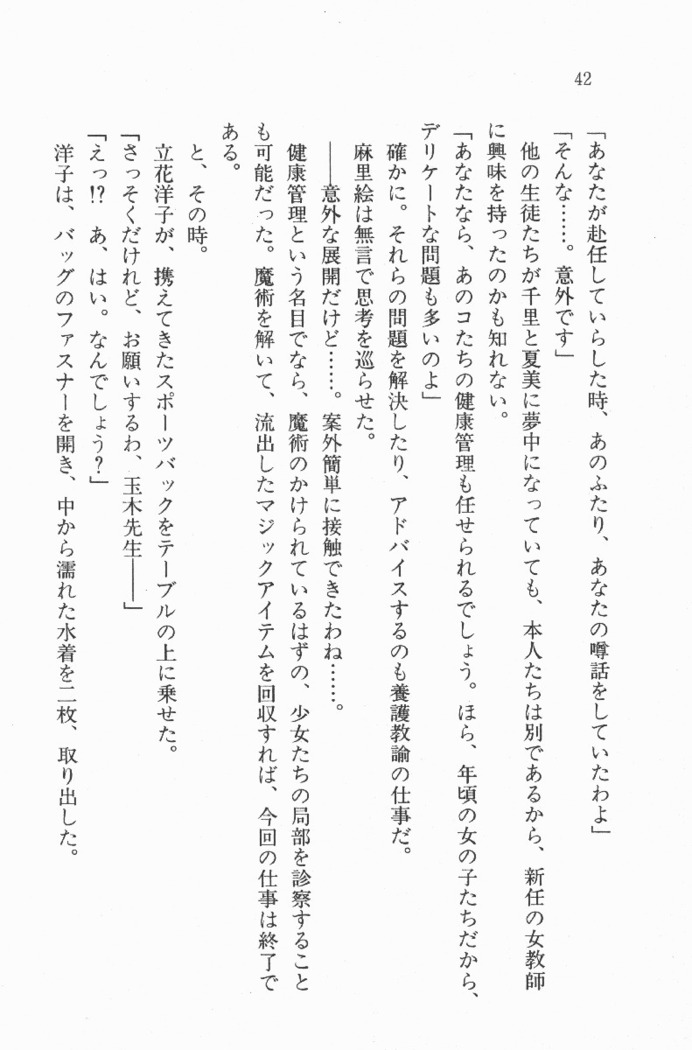 42
「あなたが赴任していらした時、あのふたり、あなたの噂話をしていたわよ」
「そんな……。意外です」
他の生徒たちが千里と夏美に夢中になっていても、本人たちは別であるから、新任の女教師
に興味を持ったのかも知れない。
「あなたなら、あのコたちの健康管理も任せられるでしょう。ほら、年頃の女の子たちだから、
デリケートな問題も多いのよ」
確かに。それらの問題を解決したり、アドバイスするのも養護教諭の仕事だ。
麻里絵は無言で思考を巡らせた。
――意外な展開だけど……。案外簡単に接触できたわね……。
健康管理という名目でなら、魔術のかけられているはずの、少女たちの局部を診察すること
も可能だった。魔術を解いて、流出したマジックアイテムを回収すれば、今回の仕事は終了で
ある。
と、その時。
立花洋子が、携えてきたスポーツバックをテーブルの上に乗せた。
「さっそくだけれど、お願いするわ、玉木先生――」
「えっ!? あ、はい。なんでしょう？」
洋子は、バッグのファスナーを開き、中から濡れた水着を二枚、取り出した。